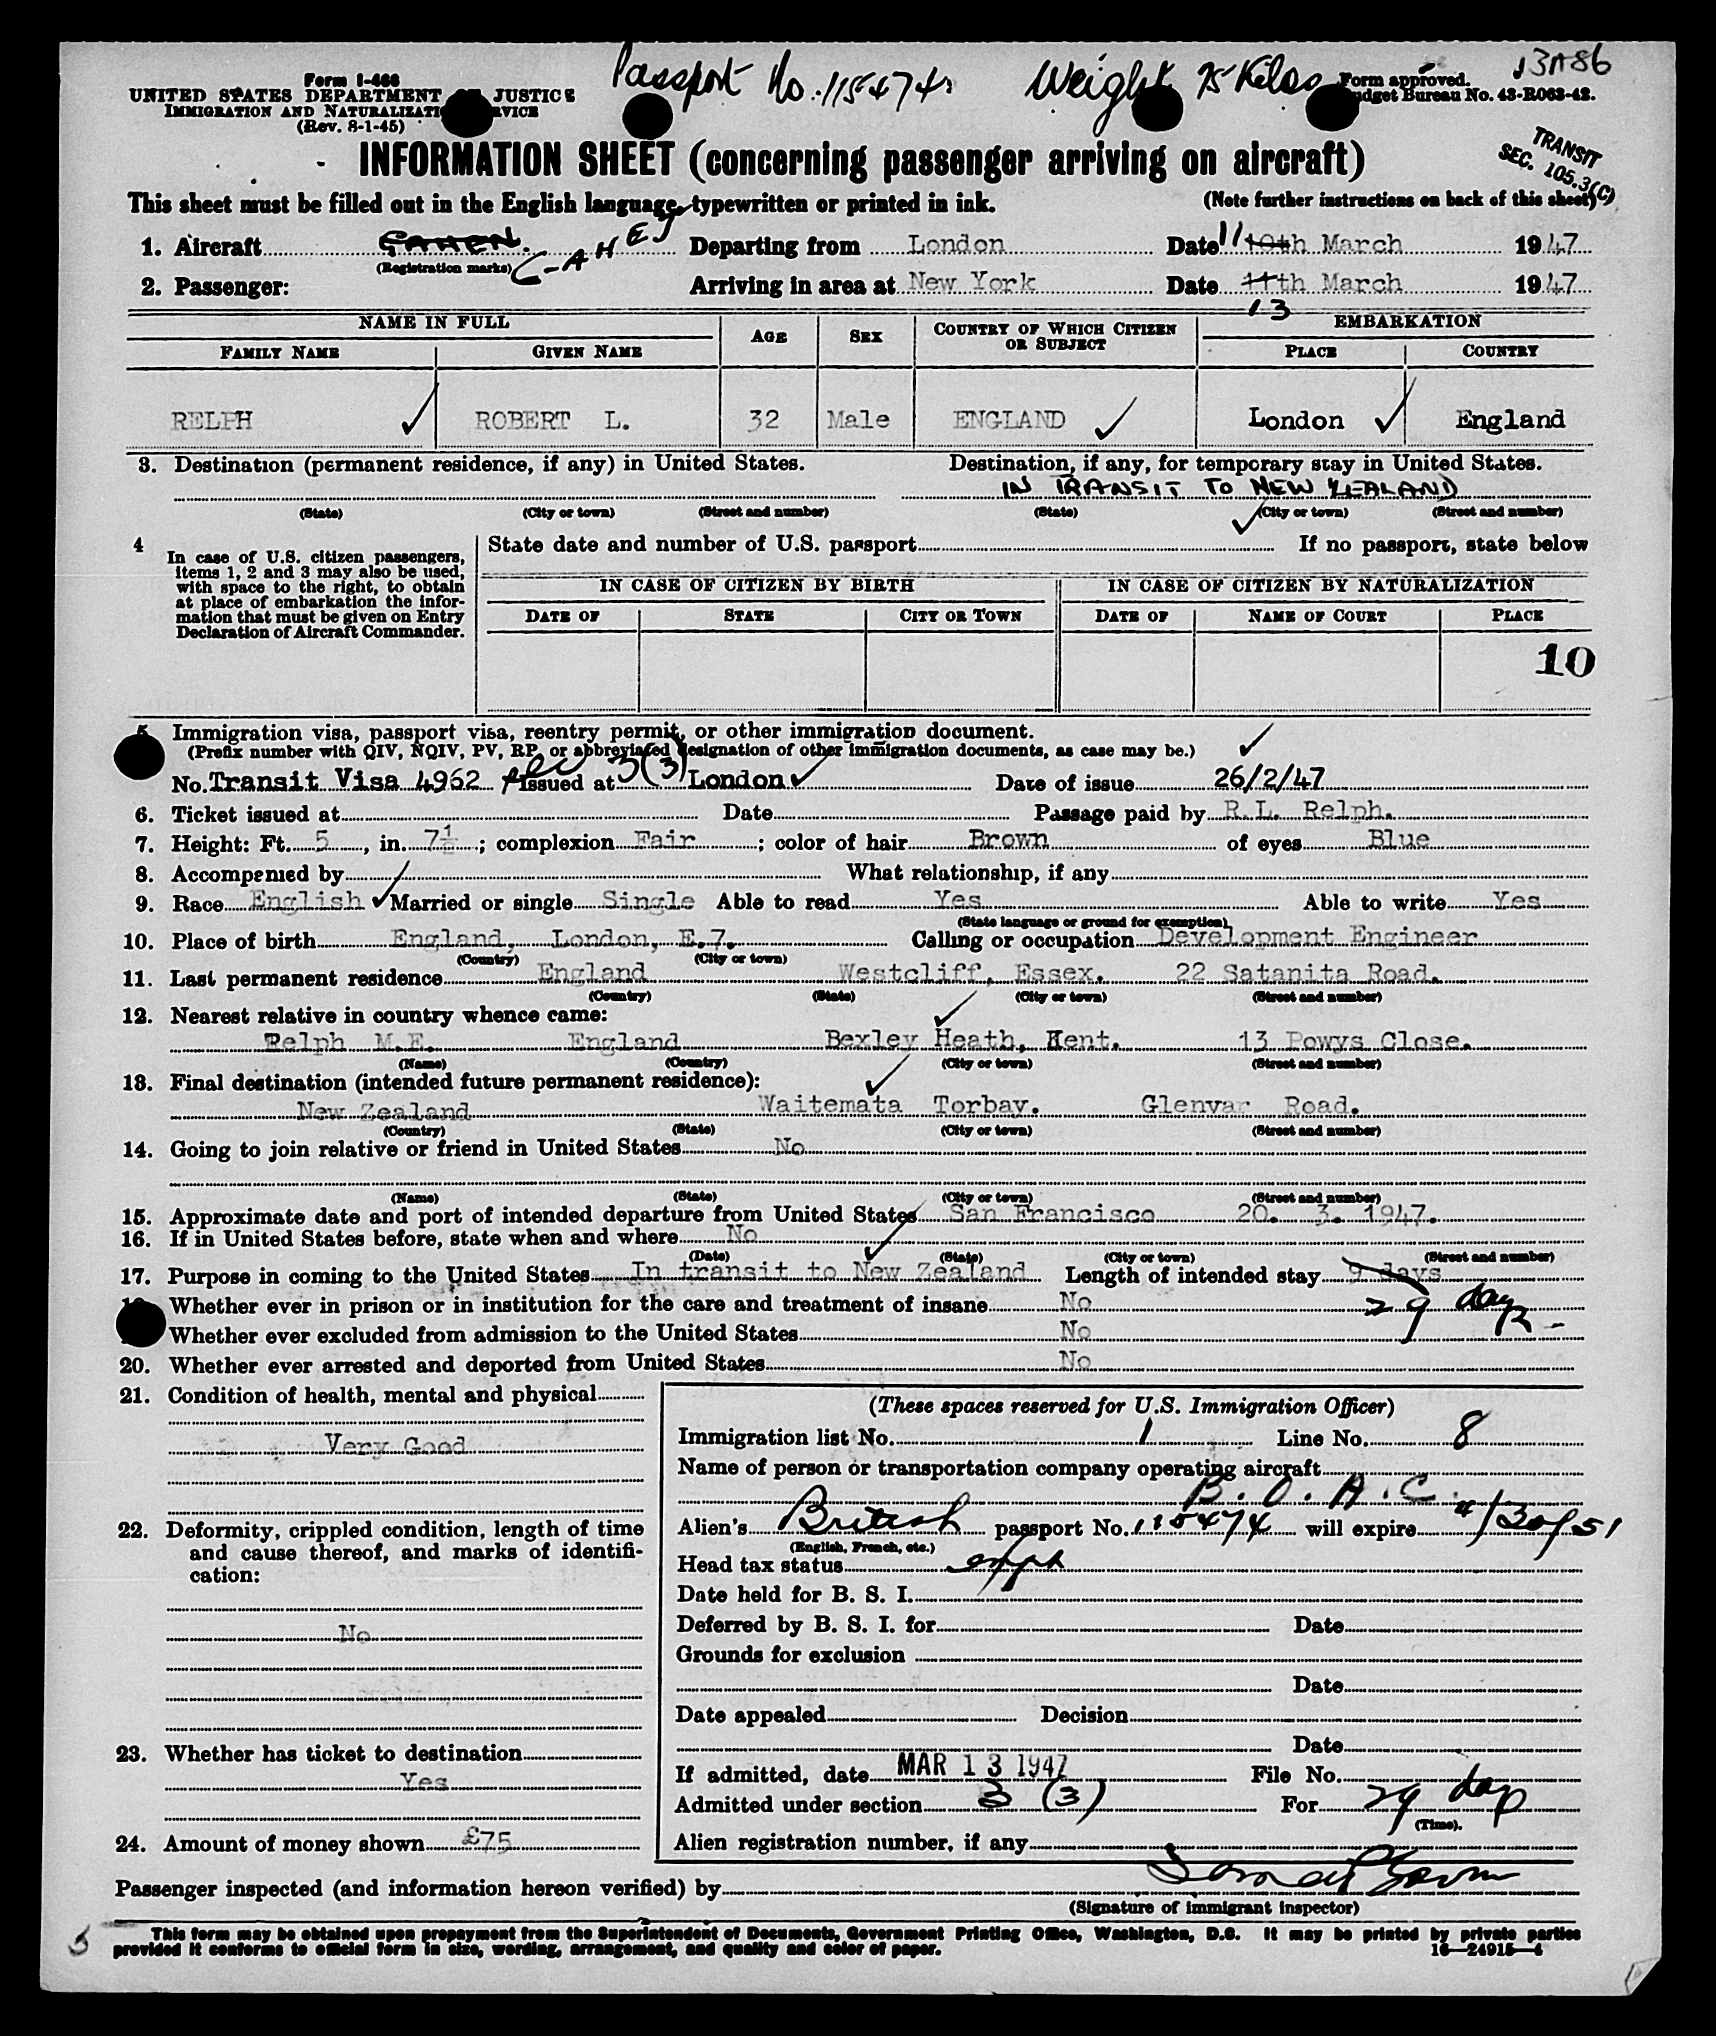 Passport No. 115474. Weight 75 Kilos 13A86
Form I-466
UNITED STATES DEPARTMENT JUSTICE
IMMIGRATION AND NATURALIZATI RVICE
(Rev. 8-1-45)
Form approved.
dget Bureau No. 43-R063-42.
TRANSIT
SEC. 105.3(C)
INFORMATION SHEET (concerning passenger arriving on aircraft)
This sheet must be filled out in the English language, typewritten or printed in ink.
(Note further instructions on back of this sheet)
1. Aircraft GAHEN. G-AHEJ Departing from London Date 11 10th March 1947
(Registration marks)
2. Passenger: Arriving in area at New York Date 11th March 1947
13
NAME IN FULL AGE SEX COUNTRY OF WHICH CITIZEN OR SUBJECT EMBARKATION
FAMILY NAME GIVEN NAME PLACE COUNTRY
RELPH ROBERT L. 32 Male ENGLAND London England
3. Destination (permanent residence, if any) in United States. Destination, if any, for temporary stay in United States.
IN TRANSIT TO NEW ZEALAND
(State) (City or town) (Street and number) (State) (City or town) (Street and number)
4 In case of U.S. citizen passengers, items 1, 2 and 3 may also be used, with space to the right, to obtain at place of embarkation the information that must be given on Entry Declaration of Aircraft Commander.
State date and number of U.S. passport If no passport, state below
IN CASE OF CITIZEN BY BIRTH IN CASE OF CITIZEN BY NATURALIZATION
DATE OF STATE CITY OR TOWN DATE OF NAME OF COURT PLACE
10
5 Immigration visa, passport visa, reentry permit, or other immigration document.
(Prefix number with QIV, NQIV, PV, RP, or abbreviated designation of other immigration documents, as case may be.)
No. Transit Visa 4962 Issued at 3(3) London Date of issue 26/2/47
6. Ticket issued at Date Passage paid by R.L. Relph.
7. Height: Ft. 5, in. 7½; complexion Fair; color of hair Brown of eyes Blue
8. Accompenied by What relationship, if any
9. Race English Married or single Single Able to read Yes Able to write Yes
(State language or ground for exemption)
10. Place of birth England, London, E.7. Calling or occupation Development Engineer
(Country) (City or town)
11. Last permanent residence England Westcliff, Essex. 22 Satanita Road.
(Country) (State) (City or town) (Street and number)
12. Nearest relative in country whence came:
Relph M.E. England Bexley Heath, Kent. 13 Powys Close.
(Name) (Country) (City or town) (Street and number)
13. Final destination (intended future permanent residence):
New Zealand Waitemata Torbay. Glenvar Road.
(Country) (State) (City or town) (Street and number)
14. Going to join relative or friend in United States No
(Name) (State) (City or town) (Street and number)
15. Approximate date and port of intended departure from United States San Francisco 20. 3. 1947.
16. If in United States before, state when and where No
(Date) (State) (City or town) (Street and number)
17. Purpose in coming to the United States In transit to New Zealand Length of intended stay 9 days
Whether ever in prison or in institution for the care and treatment of insane No 29 days
Whether ever excluded from admission to the United States No
20. Whether ever arrested and deported from United States No
21. Condition of health, mental and physical
Very Good
22. Deformity, crippled condition, length of time
and cause thereof, and marks of identifi-
cation:
No
23. Whether has ticket to destination
Yes
24. Amount of money shown £75
(These spaces reserved for U.S. Immigration Officer)
Immigration list No. 1 Line No. 8
Name of person or transportation company operating aircraft
B.O.A.C.
Alien's British passport No. 115474 will expire 4/30/51
(English, French, etc.)
Head tax status
Date held for B. S. I.
Deferred by B. S. I. for Date
Grounds for exclusion
Date
Date appealed Decision
Date
If admitted, date MAR 13 1947 File No.
Admitted under section 3 (3) For 29 days
(Time).
Alien registration number, if any
Passenger inspected (and information hereon verified) by
(Signature of immigrant inspector)
This form may be obtained upon prepayment from the Superintendent of Documents, Government Printing Office, Washington, D.C. It may be printed by private parties
provided it conforms to official form in size, wording, arrangement, and quality and color of paper. 16—24915-4
5